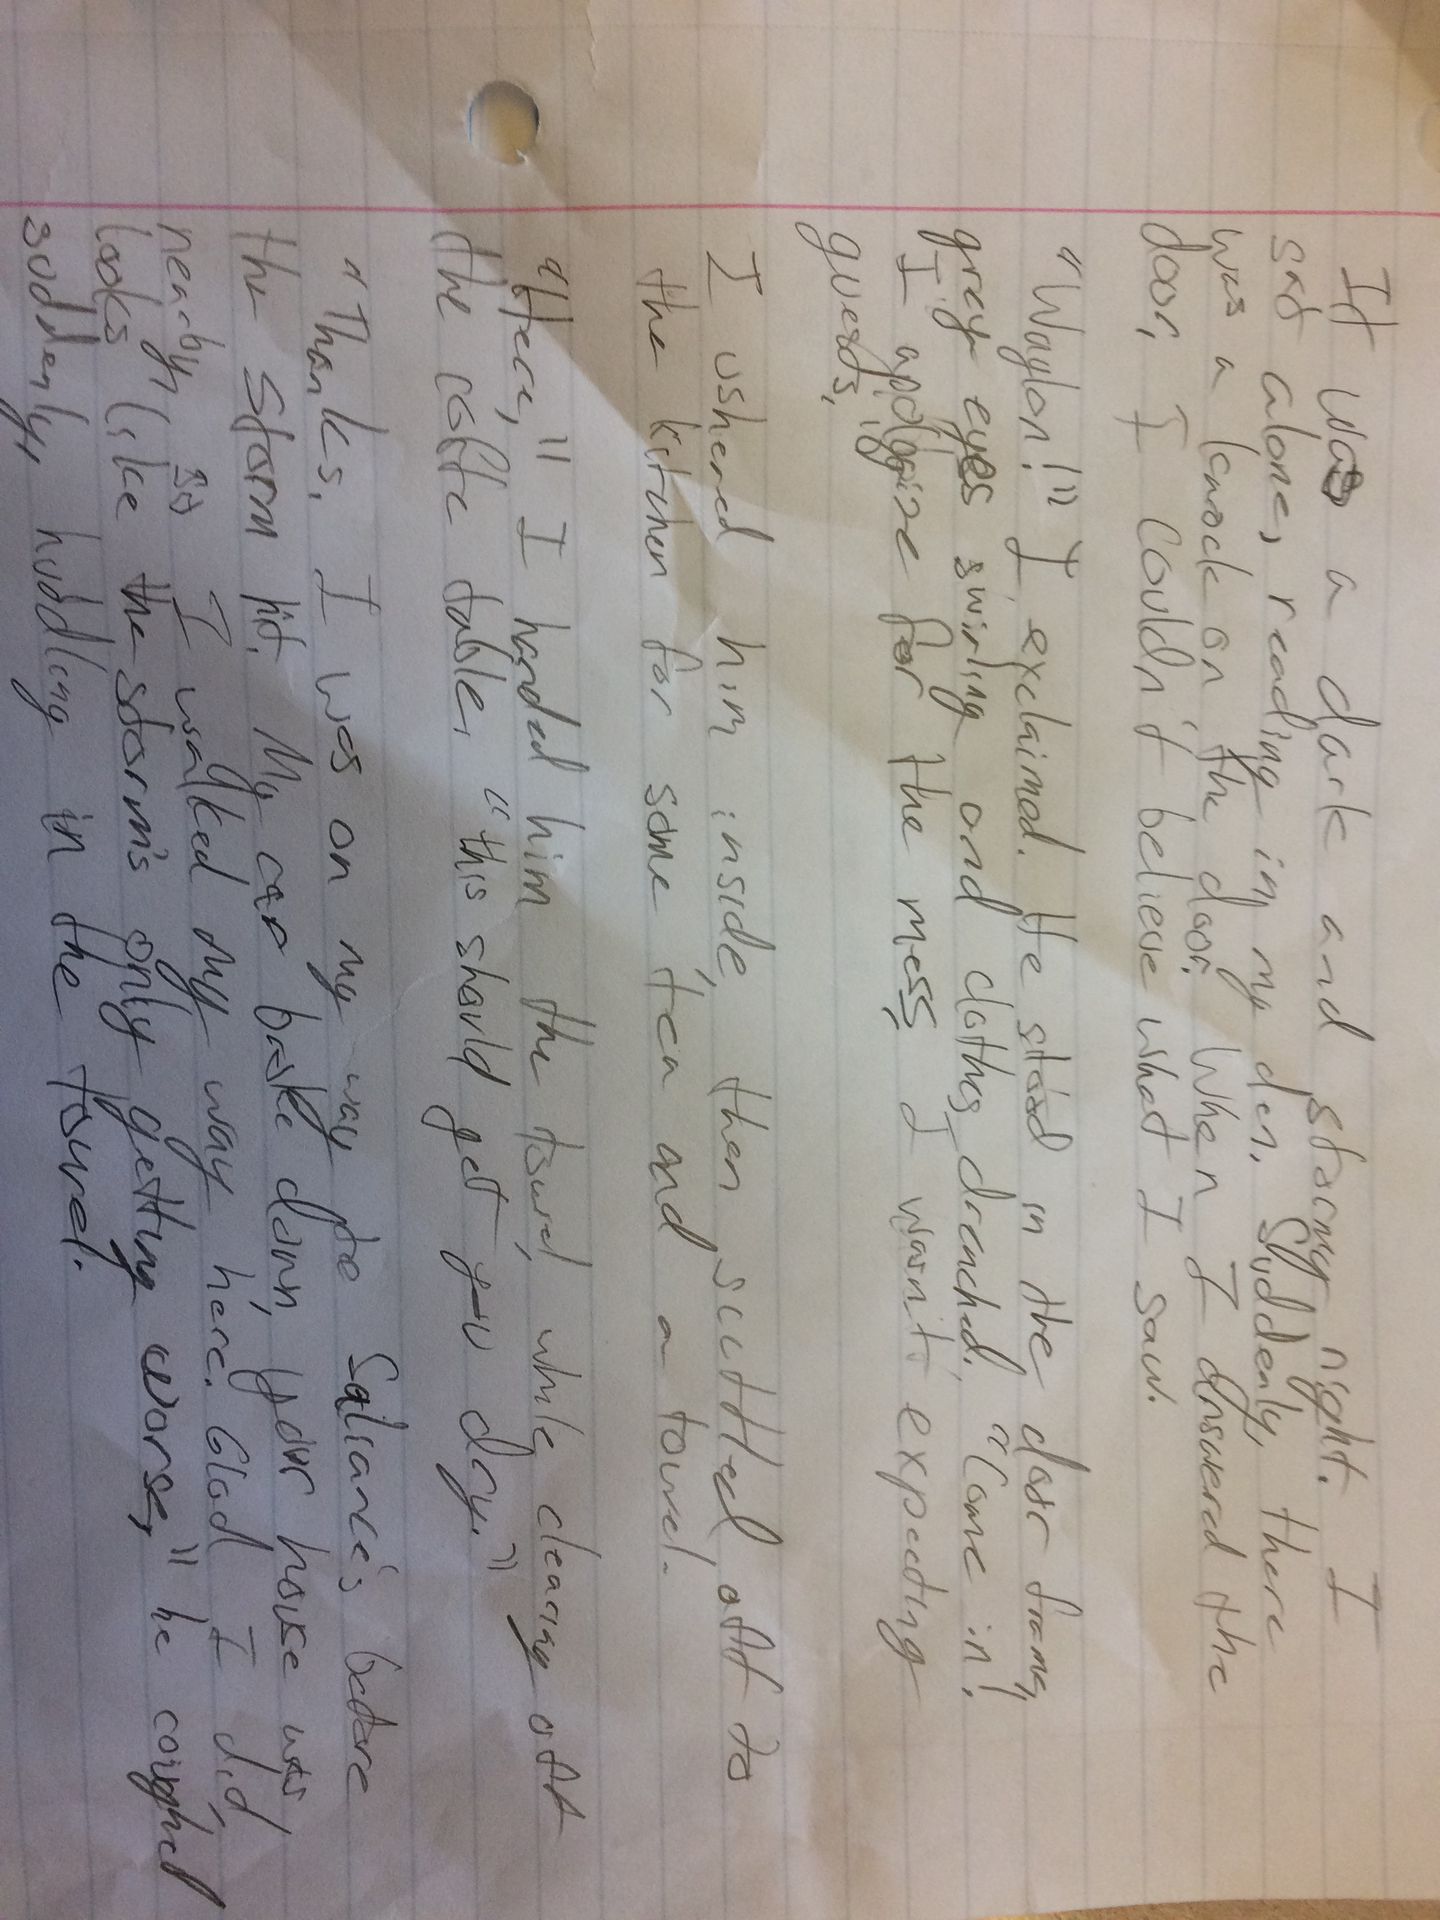 It was a dark and stormy night. I
sat alone, reading in my den. Suddenly, there
was a knock on the door. When I answered the
door, I couldn't believe what I saw.
"Waylon!" I exclaimed. He stood in the door frame,
gray eyes swirling and clothes drenched. "Come in!
I apologize for the mess, I wasn't expecting
guests.
I ushered him inside, then scuttled off to
the kitchen for some tea and a towel.
"Here," I handed him the towel while clearing off
the coffe table, "this should get you dry."
"Thanks. I was on my way to Saliance's before
the storm hit. My car broke down, your house was
nearby, so I walked my way here. Glad I did,
looks like the storm's only getting worse," he coughed
suddenly, huddling in the towel.